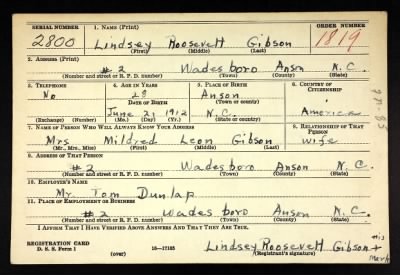 SERIAL NUMBER 1. NAME (Print) ORDER NUMBER
2800 Lindsey Roosevelt Gibson 1819
(First) (Middle) (Last)
2. ADDRESS (Print)
#2 Wadesboro Anson N.C.
(Number and street or R. F. D. number) (Town) (County) (State)
3. TELEPHONE 4. AGE IN YEARS 5. PLACE OF BIRTH 6. COUNTRY OF CITIZENSHIP
No 28 Anson
DATE OF BIRTH (Town or county)
June 21 1912 N.C. America
(Exchange) (Number) (Mo.) (Day) (Yr.) (State or country)
7. NAME OF PERSON WHO WILL ALWAYS KNOW YOUR ADDRESS 8. RELATIONSHIP OF THAT PERSON
Mrs Mildred Leon Gibson Wife
(Mr., Mrs., Miss) (First) (Middle) (Last)
9. ADDRESS OF THAT PERSON
#2 Wadesboro Anson N.C.
(Number and street or R. F. D. number) (Town) (County) (State)
10. EMPLOYER'S NAME
Mr Tom Dunlap
11. PLACE OF EMPLOYMENT OR BUSINESS
#2 Wadesboro Anson N.C.
(Number and street or R. F. D. number) (Town) (County) (State)
I AFFIRM THAT I HAVE VERIFIED ABOVE ANSWERS AND THAT THEY ARE TRUE.
REGISTRATION CARD Lindsey Roosevelt Gibson his + Mark
D. S. S. Form 1 (over) 16-17105 (Registrant's signature)